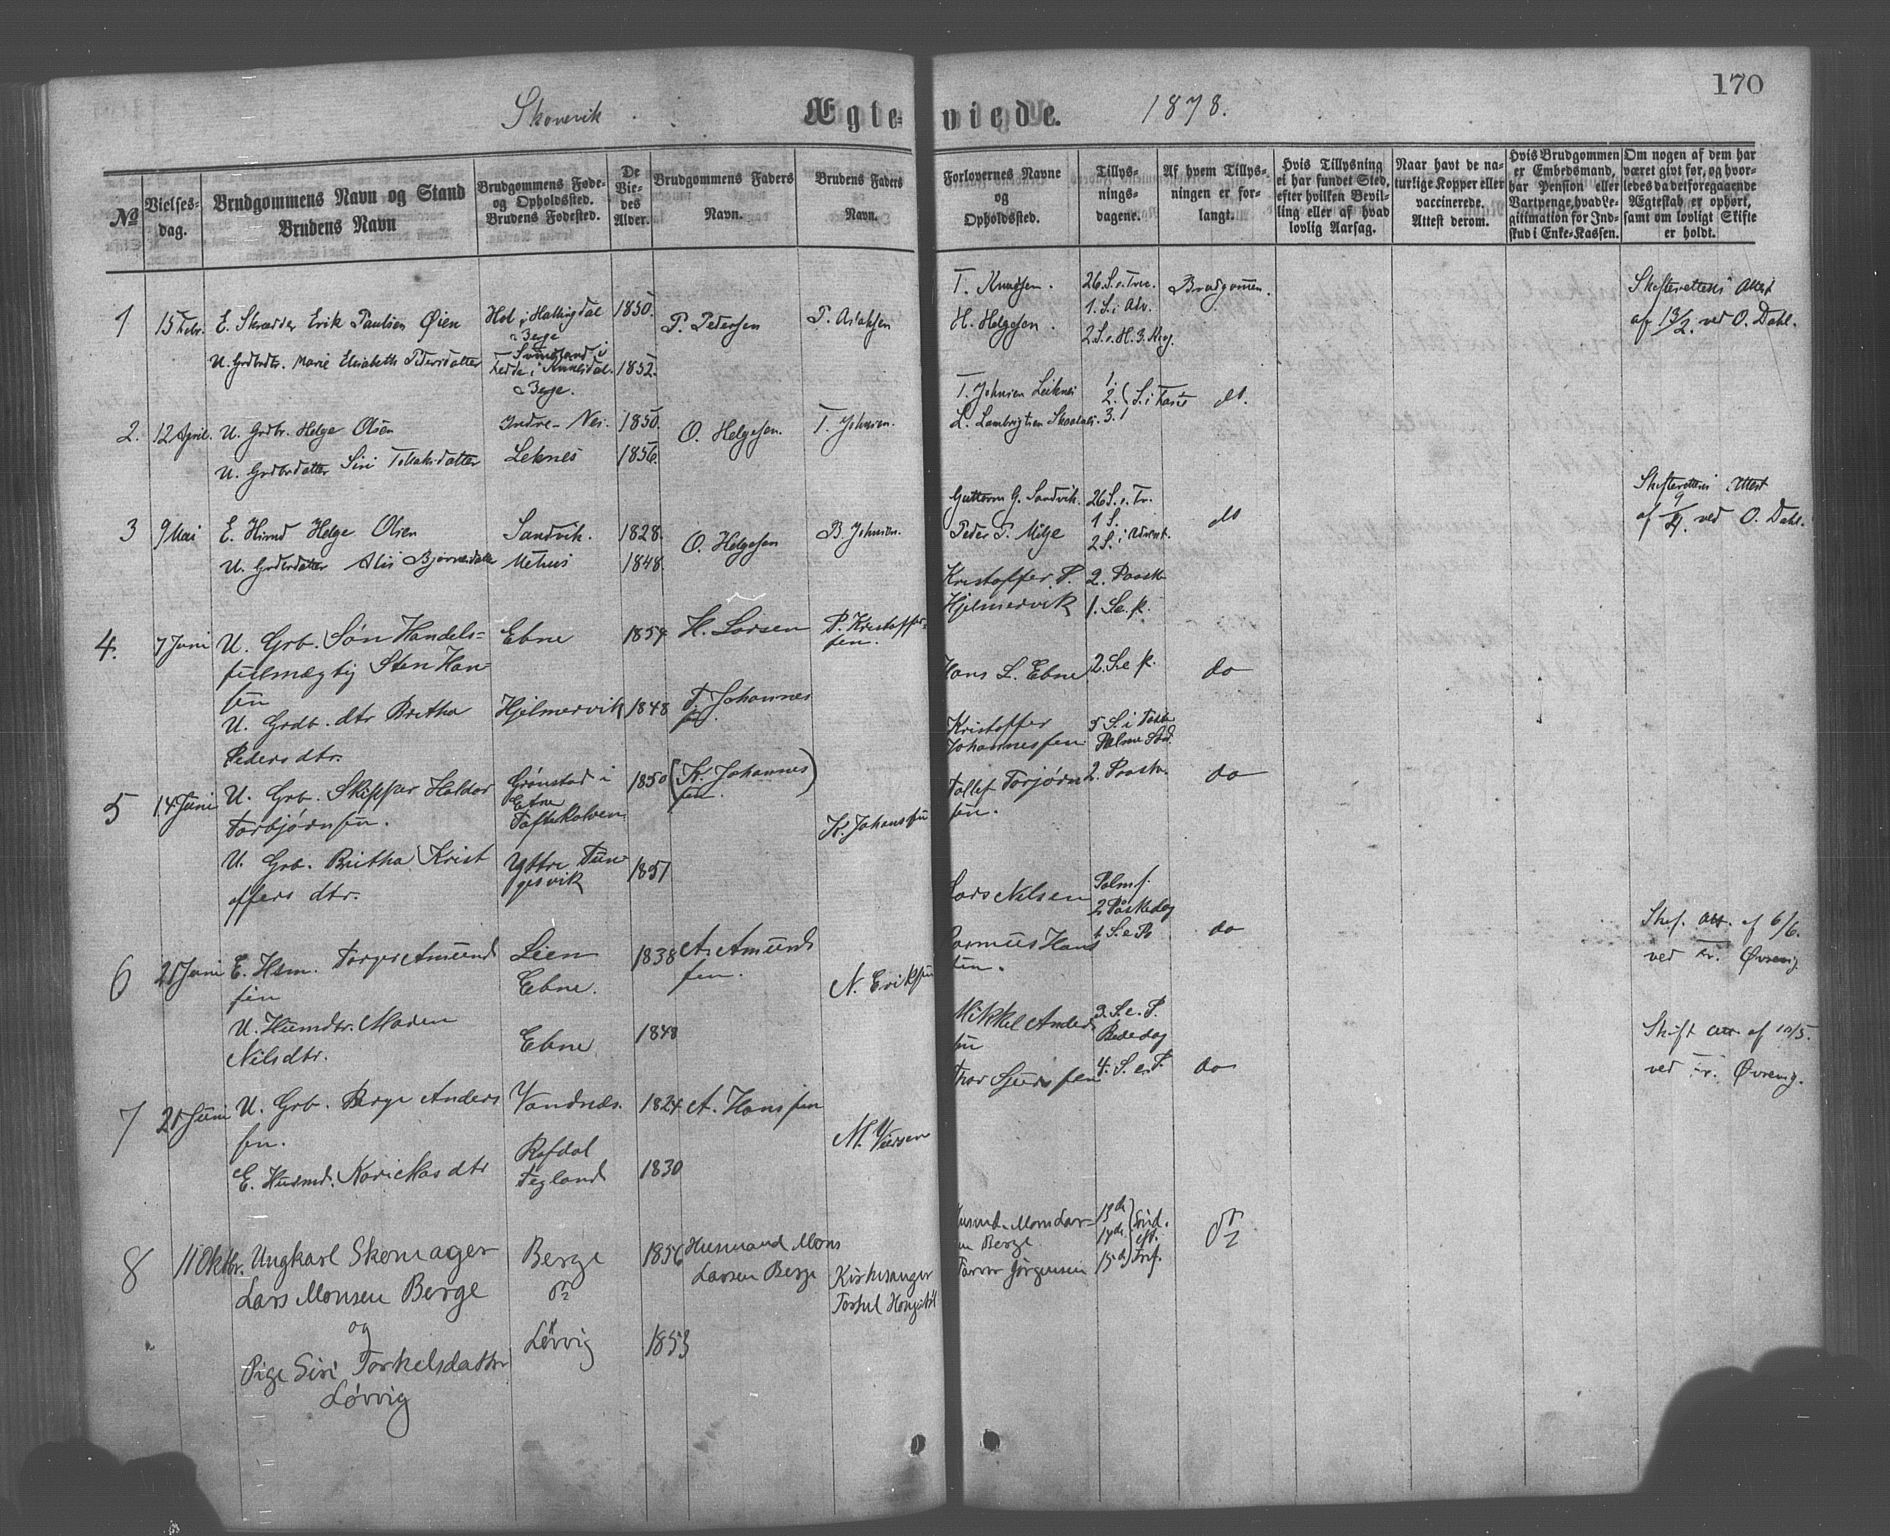 170
Skonevik
Ægteviede.
1878.
No
Vielsesdag.
Brudgommens Navn og Stand
Brudens Navn
Brudgommens Føde- og Opholdssted.
Brudens Fødested.
De Viedes Alder.
Brudgommens Faders Navn.
Brudens Faders Navn.
Forlovernes Navne og Opholdssted.
Tillysningsdagene.
Af hvem Tillysningen er forlangt.
Hvis Tillysning ei har fundet Sted, efter hvilken Bevilling eller af hvad lovlig Aarsag.
Naar havt de naturlige Kopper eller vaccinerede. Attest derom.
Hvis Brudgommen er Embedsmand, har Pension eller Vartpenge, hvad Legitimation for Indskud i Enke-Kassen.
Om nogen af dem har været givt før, og hvorledes da det foregaaende Ægteskab er ophørt, samt om lovligt Skifte er holdt.
1
15 Febr.
E. Skrædder Erik Paulsen Øien
U. Grdbrdtr. Marie Elisabeth Pedersdatter
Hol i Hallingdal
Berge
1850.
1852.
P. Pedersen
T. Aslaksen
T. Knudsen.
H. Helgesen.
26. S. e. Tre.
1. S. i Adv.
Brudgommen.
Skifterettens Attest
af 13/2 ved O. Dahl.
2.
12 April.
U. Grdbr. Helge Olsen
U. Grdbrdatter Siri Tollaksdatter
Indre-Nes.
Leknes
1850.
1856.
O. Helgesen.
T. Johnsen.
T. Johnsen Leiknes
L. Lambrigtsen
1.
2. S. i Faste
3.
do.
3
9 Mai
E. Husmd Helge Olsen
U. Grdbrdatter Alis Bjørnsdatter
Sandvik.
Mehus
1828.
1848.
O. Helgesen
B. Johnsen.
Guttorm G. Sandvik.
Peder P. Milje
26 S. e. Tr.
1 S.
2 S. i Advent.
do
Skifterettens Attest
af 9/4. ved O. Dahl.
4.
7 Juni
U. Grb. Søn Handels=
fullmægtig Sten Han-
sen
U. Grdb. dtr Britha
Pedersdtr.
Ebne
Hjelmervik
1854
1848
H. Larsen
P. Johannes
sen.
P. Kristoffer-
sen.
Kristoffer P.
Hjelmervik
Hans L. Ebne
2. Paask
1. S. e. p.
2. S. e. p.
do
5
14 Juni
U. Grb. Skipper Haldor
Torbjørnsen.
U. Grb. Britha Krist
offers dtr.
Grønstad i
Etne
Yttre Tun-
gesvik
1850
1857
(K. Johannes
sen.)
K. Johanssen
Kristoffer
Johannessen
Tollef Torjørn
sen.
5 S. i Faste
Palme Sød.
2. Paaske.
do
6
21 Juni
E. Hsm. Torger Amund
sen
U. Husmdtr. Maren
Nilsdtr.
Lien
Ebne.
Ebne
1838
1848
A. Amund
sen.
N. Eriksen
Lars Nilsen
Rasmus Hans
sen.
Palms.
2 Påskedag
1. S. e. P.
do
Skif. att. af 6/6.
ved Fr. Øvreng.
7
21 Juni
U. Grb. Berge Anders
sen.
E. Husmd. Kari Mas dtr
Vandnæs.
Rafdal
Tegland
1824
1830
A. Hanssen
M. Iversen
Mikkel Anders
sen
Thor Sjursen
3. S. e. P.
Bededag
4. S. e. P.
do
Skift att. af 10/5.
ved Fr. Øvreng.
8
11 Oktbr.
Ungkarl Skomager
Lars Monsen Berge
og
Pige Siri Torkelsdatter
Løvvig
Berge
Løvvig
1856
1853
Husmand Mons
Larsen Berge
Kirkesanger
Husmd. Mons Lar=
sen Berge.
Jørgensen
13de
14de
15de
Sønd.
eft.
Tref.